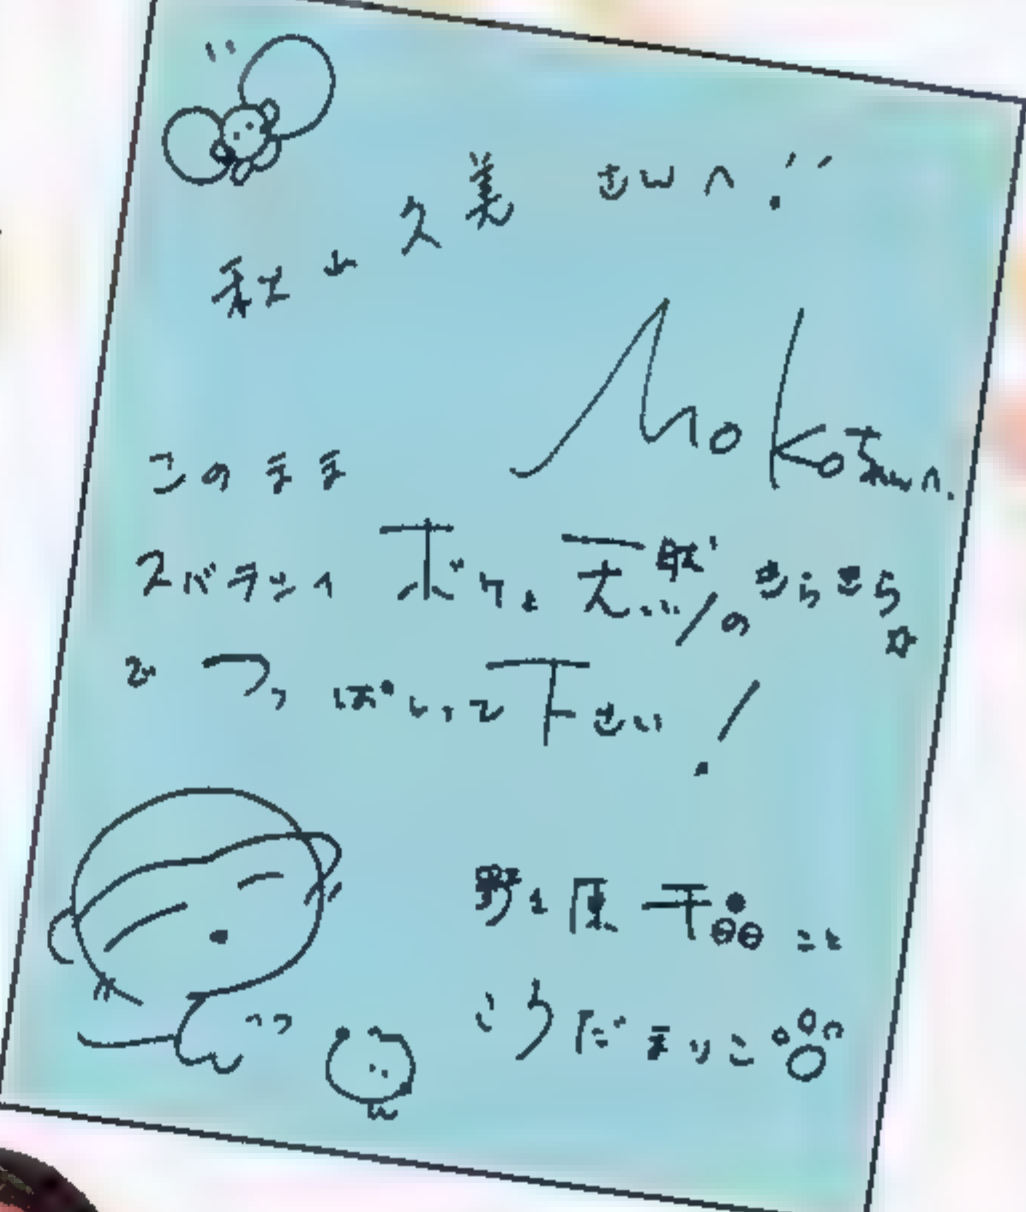 秋山久美 さんへ!!
Mokoちゃんへ.
このまま
スバラシイ ボケと天然!のきらきら☆
で つっぱしって下さい!
千晶 こと
こうだまりこ